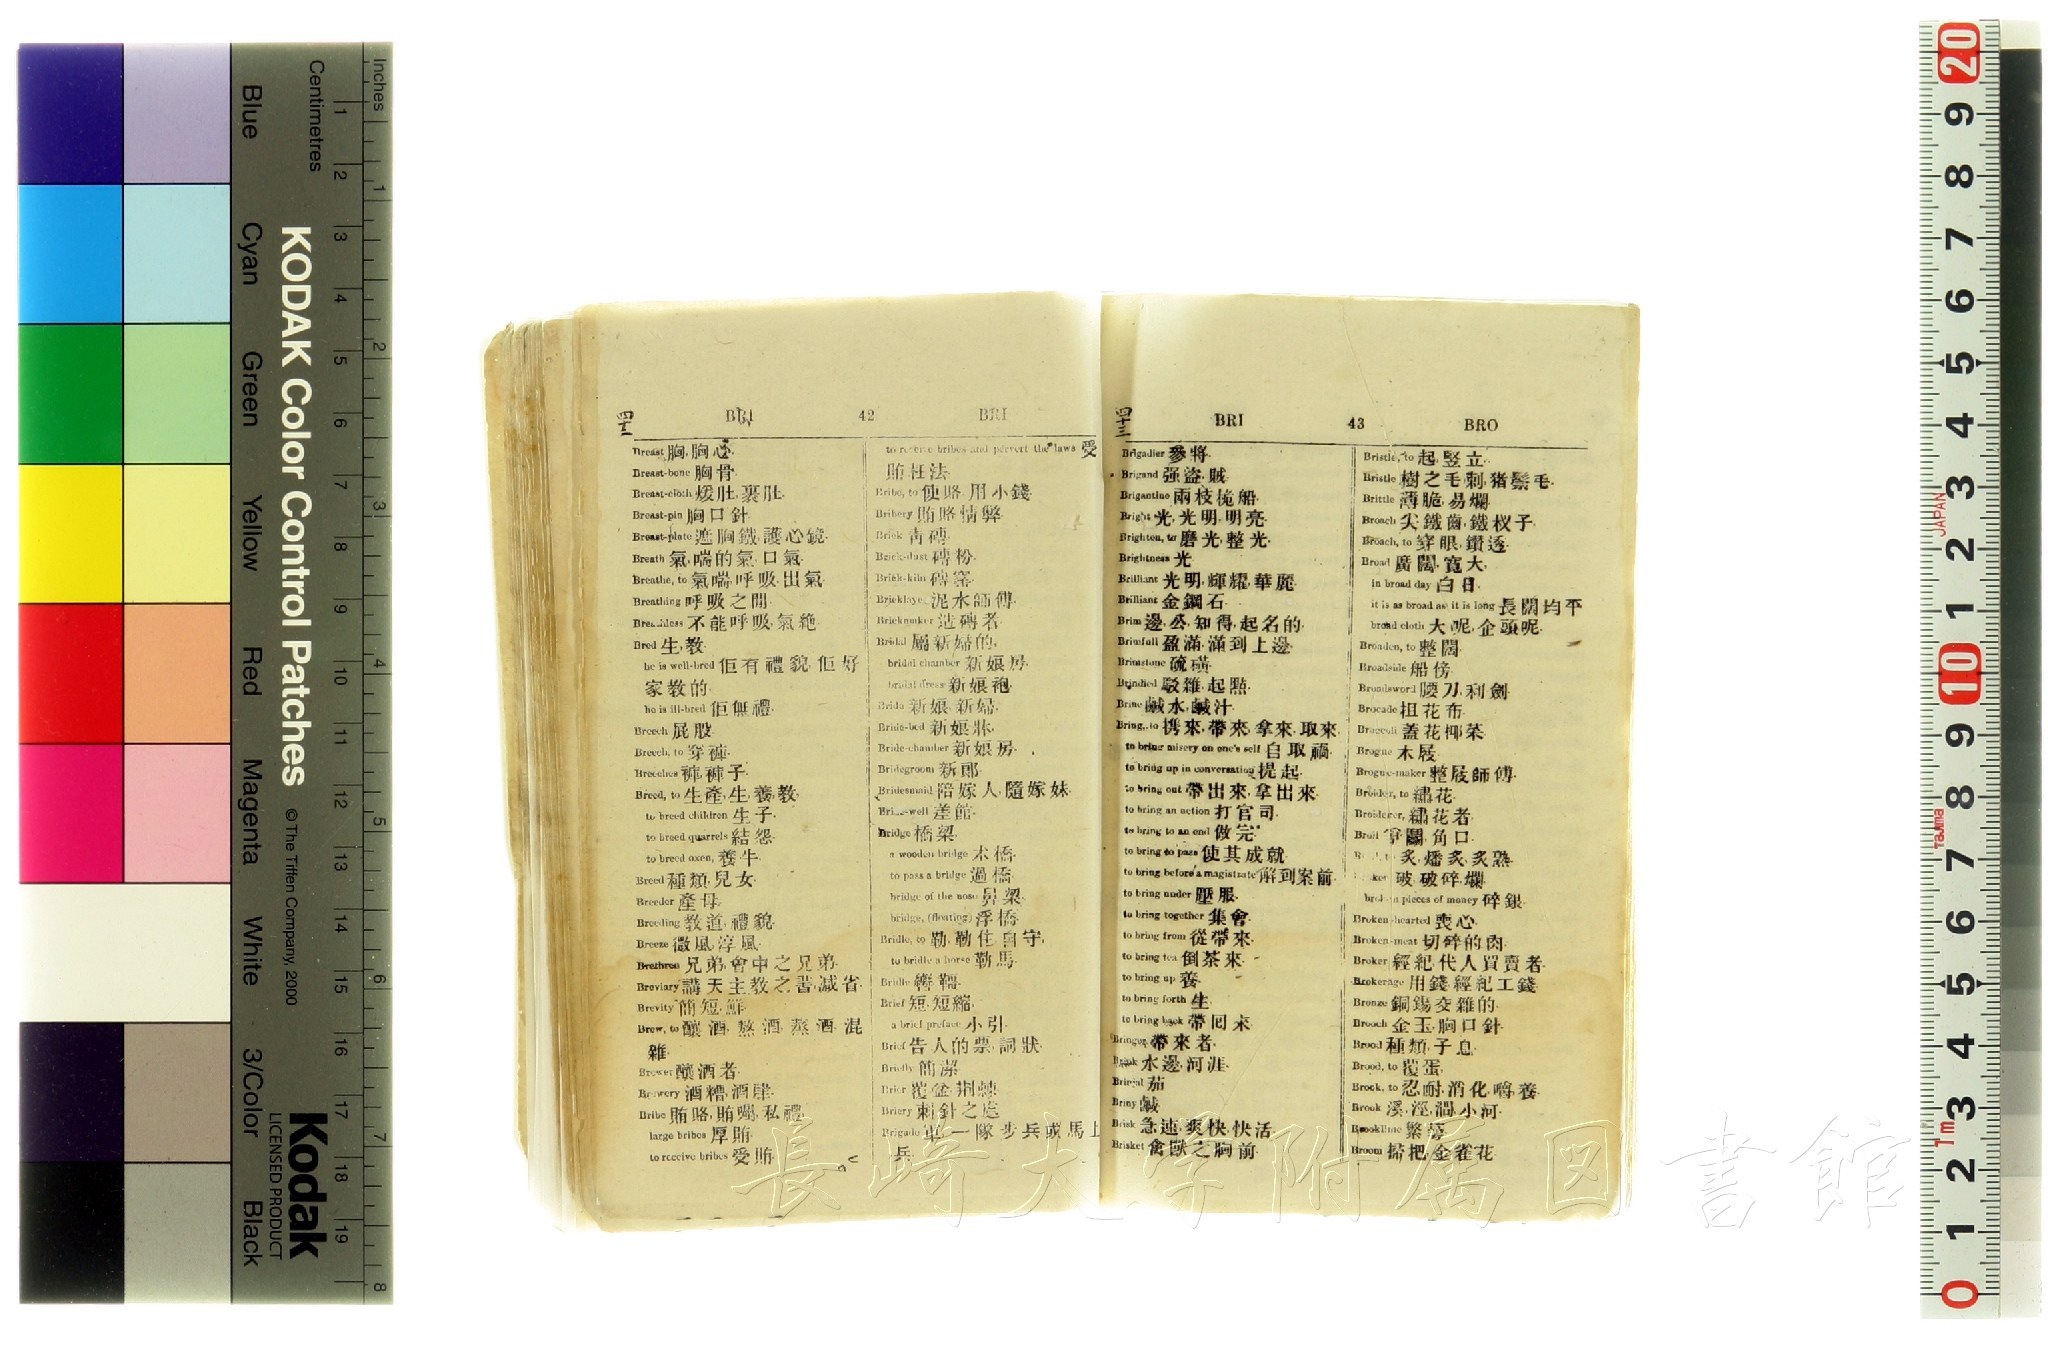 Inches
Centimetres
Blue
Cyan
Green
Yellow
Red
Magenta
White
3/Color
Black
KODAK Color Control Patches
© The Tiffen Company, 2000
Kodak
LICENSED PRODUCT
BRI 42 BRI
Breast 胸,胸心.
Breast-bone 胸骨.
Breast-cloth 煖肚,裹肚.
Breast-pin 胸口針.
Breast-plate 遮胸鐵,護心鏡.
Breath 氣,喘的氣,口氣.
Breathe, to 氣喘,呼吸,出氣.
Breathing 呼吸之間.
Breathless 不能呼吸,氣絶.
Bred 生,教.
he is well-bred 佢有禮貌,佢好
家教的.
he is ill-bred 佢無禮.
Breech 屁股.
Breech, to 穿褲.
Breeches 褲,褲子.
Breed, to 生產,生,養,教.
to breed children 生子.
to breed quarrels 結怨.
to breed oxen, 養牛.
Breed 種類,兒女.
Breeder 產母.
Breeding 教道,禮貌.
Breeze 微風,淳風.
Brethren 兄弟,會中之兄弟.
Breviary 講天主教之書,減省.
Brevity 簡短,鮮.
Brew, to 釀酒,熬酒,蒸酒,混
雜.
Brewer 釀酒者.
Brewery 酒糟,酒肆.
Bribe 賄賂,賄囑,私禮.
large bribes 厚賄.
to receive bribes 受賄.
to receive bribes and pervert the laws 受
賄枉法.
Bribe, to 使賂,用小錢.
Bribery 賄賂情弊.
Brick 青磚.
Brick-dust 磚粉.
Brick-kiln 磚窰.
Bricklayer 泥水師傅.
Brickmaker 造磚者.
Bridal 屬新婦的.
bridal chamber 新娘房.
bridal dress 新娘袍.
Bride 新娘,新婦.
Bride-bed 新娘牀.
Bride-chamber 新娘房.
Bridegroom 新郎.
Bridesmaid 陪嫁人,隨嫁妹.
Bridewell 差館.
Bridge 橋梁.
a wooden bridge 木橋.
to pass a bridge 過橋.
bridge of the nose 鼻梁.
bridge, (floating) 浮橋.
Bridle, to 勒,勒住,自守.
to bridle a horse 勒馬.
Bridle 轡韁.
Brief 短,短縮.
a brief preface 小引.
Brief 告人的票,詞狀.
Briefly 簡潔.
Brier 荆棘.
Briery 刺針之處
Brigade 軍一隊步兵或馬上
兵.
四十三
BRI 43 BRO
Brigadier 參將.
Brigand 强盜,賊.
Brigantine 兩枝桅船.
Bright 光,光明,明亮.
Brighten, to 磨光,整光.
Brightness 光
Brilliant 光明,輝耀,華麗.
Brilliant 金鋼石.
Brim 邊,公,知得,起名的.
Brimfull 盈滿,滿到上邊.
Brimstone 硫磺.
Brindled 駁雜,起點.
Brine 鹹水,鹹汁.
Bring, to 携來,帶來,拿來,取來.
to bring misery on one's self 自取禍.
to bring up in conversation 提起.
to bring out 帶出來,拿出來.
to bring an action 打官司.
to bring to an end 做完.
to bring to pass 使其成就.
to bring before a magistrate 解到案前.
to bring under 壓服.
to bring together 集會.
to bring from 從帶來.
to bring tea 倒茶來.
to bring up 養.
to bring forth 生.
to bring back 帶囘來
Bringer 帶來者.
Brink 水邊,河涯.
Brinjal 茄
Briny 鹹.
Brisk 急速,爽快,快活.
Brisket 禽獸之胸前.
Bristle, to 起,竪立.
Bristle 樹之毛刺,猪鬃毛.
Brittle 薄脆,易爛.
Broach 尖鐵齒,鐵杈子.
Broach, to 穿眼,鑽透.
Broad 廣闊,寬大.
in broad day 白日.
it is as broad as it is long 長闊均平
broad cloth 大呢,企頭呢.
Broaden, to 整闊.
Broadside 船傍.
Broadsword 腰刀,利劍.
Brocade 扭花布.
Broccoli 蓋花椰菜.
Brogue 木屐.
Brogue-maker 整屐師傅.
Broider, to 繡花.
Broiderer, 繡花者.
Broil 爭鬬,角口.
炙,燔炙,炙熟.
破,破碎,爛.
broken pieces of money 碎銀.
Broken-hearted 喪心.
Broken-meat 切碎的肉.
Broker 經紀,代人買賣者.
Brokerage 用錢,經紀工錢
Bronze 銅錫交雜的.
Brooch 金玉胸口針.
Brood 種類,子息.
Brood, to 覆蛋.
Brook, to 忍耐,消化,養.
Brook 溪,澗,小河.
Brooklime
Broom 掃把,金雀花
長崎大学附属図書館
JAPAN
Tajima
1m